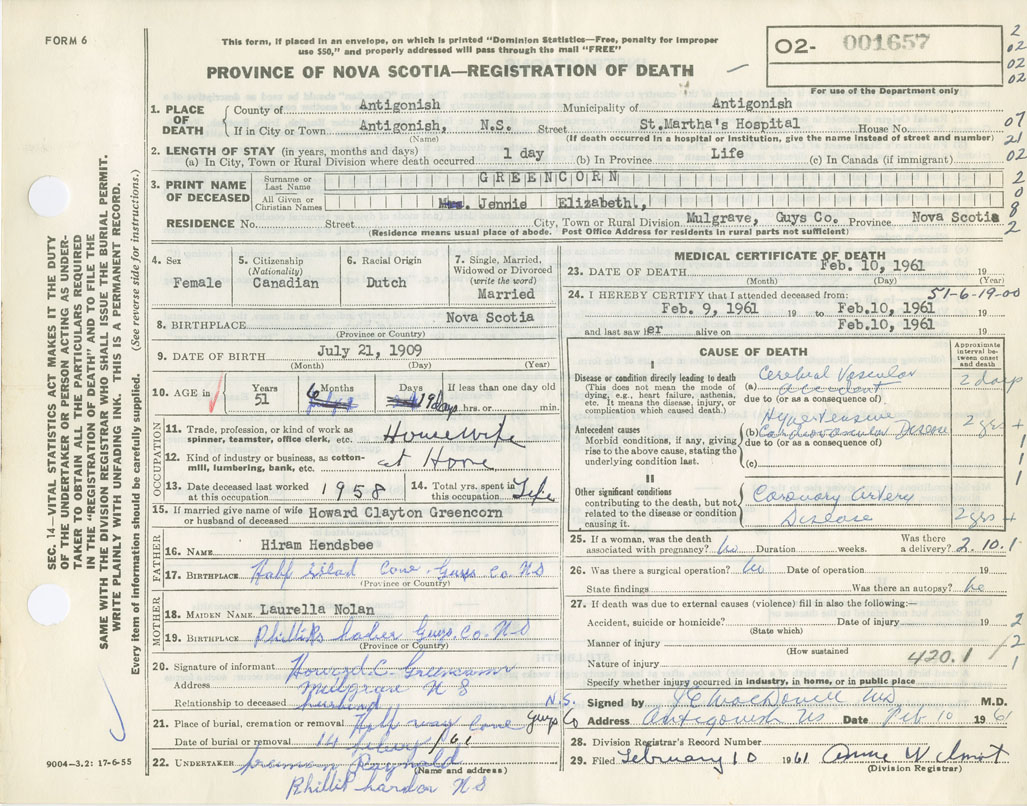 FORM 6
This form, if placed in an envelope, on which is printed "Dominion Statistics—Free, penalty for improper
use $50," and properly addressed will pass through the mail "FREE"
PROVINCE OF NOVA SCOTIA—REGISTRATION OF DEATH
02- 001657
For use of the Department only
2
02
02
02
07
21
02
2
0
8
2
1. PLACE OF DEATH
County of Antigonish Municipality of Antigonish
If in City or Town Antigonish, N.S. Street St.Martha's Hospital House No.
(Name) (If death occurred in a hospital or Institution, give the name instead of street and number)
2. LENGTH OF STAY (in years, months and days)
(a) In City, Town or Rural Division where death occurred 1 day (b) In Province Life (c) In Canada (if immigrant)
3. PRINT NAME OF DECEASED
Surname or Last Name GREENCORN
All Given or Christian Names Mrs. Jennie Elizabeth.,
RESIDENCE No. Street City, Town or Rural Division Mulgrave, Guys Co. Province Nova Scotia
(Residence means usual place of abode. Post Office Address for residents in rural parts not sufficient)
SEC. 14—VITAL STATISTICS ACT MAKES IT THE DUTY
OF THE UNDERTAKER OR PERSON ACTING AS UNDER-
TAKER TO OBTAIN ALL THE PARTICULARS REQUIRED
IN THE "REGISTRATION OF DEATH" AND TO FILE THE
SAME WITH THE DIVISION REGISTRAR WHO SHALL ISSUE THE BURIAL PERMIT.
WRITE PLAINLY WITH UNFADING INK. THIS IS A PERMANENT RECORD.
Every item of information should be carefully supplied. (See reverse side for instructions.)
4. Sex
Female
5. Citizenship
(Nationality)
Canadian
6. Racial Origin
Dutch
7. Single, Married,
Widowed or Divorced
(write the word)
Married
8. BIRTHPLACE Nova Scotia
(Province or Country)
9. DATE OF BIRTH July 21, 1909
(Month) (Day) (Year)
10. AGE in
Years
51
Months
6
Days
19 days
If less than one day old
hrs. or min.
OCCUPATION
11. Trade, profession or kind of work as
spinner, teamster, office clerk, etc. HomeWife
12. Kind of industry or business, as cotton-
mill, lumbering, bank, etc. at Home
13. Date deceased last worked
at this occupation 1958
14. Total yrs. spent in
this occupation Life
15. If married give name of wife
or husband of deceased Howard Clayton Greencorn
FATHER
16. NAME Hiram Hendsbee
17. BIRTHPLACE Half Cove Guys Co NS
(Province or Country)
MOTHER
18. MAIDEN NAME Laurella Nolan
19. BIRTHPLACE Phillips Guys. Co. NS
(Province or Country)
20. Signature of informant Howard C. Greencorn
Address Mulgrave N S
Relationship to deceased husband
21. Place of burial, cremation or removal Half way Cove Guys Co N.S.
Date of burial or removal 14 /61
22. UNDERTAKER
(Name and address)
Phillip N S
9004—3.2: 17-6-55
MEDICAL CERTIFICATE OF DEATH
23. DATE OF DEATH Feb. 10, 1961 19
(Month) (Day) (Year)
51-6-19-00
24. I HEREBY CERTIFY that I attended deceased from:
Feb. 9, 1961 19 to Feb.10, 1961 19
and last saw her alive on Feb.10, 1961 19
CAUSE OF DEATH
Approximate interval between onset and death
I
Disease or condition directly leading to death
(This does not mean the mode of
dying, e.g., heart failure, asthenia,
etc. It means the disease, injury, or
complication which caused death.)
(a) Cerebral Vascular
Accident 2 days
due to (or as a consequence of)
Antecedent causes
Morbid conditions, if any, giving
rise to the above cause, stating the
underlying condition last.
Hypertensive
(b) Cardiovascular Disease 2 yrs +
due to (or as a consequence of)
(c)
II
Other significant conditions
contributing to the death, but not
related to the disease or condition
causing it.
Coronary Artery
Disease 2 yrs +
1
1
1
1
25. If a woman, was the death
associated with pregnancy? No Duration weeks. Was there a delivery? 2.10.1
26. Was there a surgical operation? No Date of operation 19
State findings Was there an autopsy? No
27. If death was due to external causes (violence) fill in also the following:—
Accident, suicide or homicide? Date of injury 19
(State which)
Manner of injury
(How sustained
Nature of injury 420.1
2
2
1
Specify whether injury occurred in industry, in home, or in public place
Signed by MacDonell MD M.D.
Address Antigonish NS Date Feb 10 1961
28. Division Registrar's Record Number
29. Filed February 10 1961 Anne
(Division Registrar)